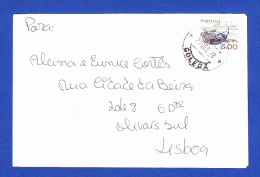 Para:
PORTUGAL
5.00
GOLEGÃ
Alcina e Eunice Cortês
Rua Cidade da Beira
Olivais Sul
Lisboa